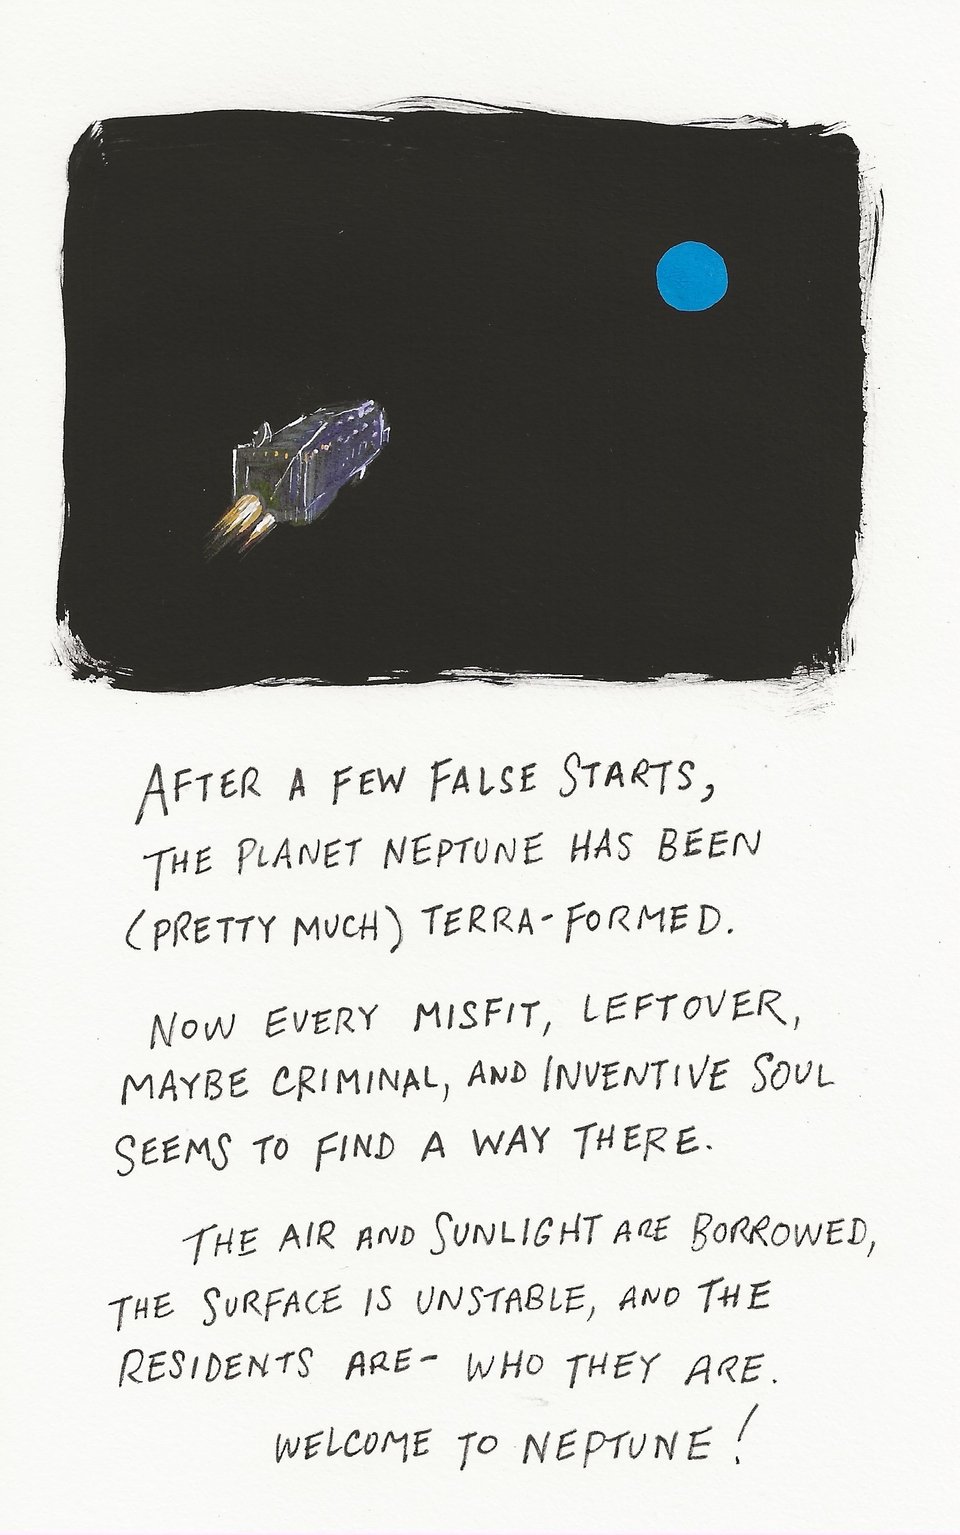 AFTER A FEW FALSE STARTS,
THE PLANET NEPTUNE HAS BEEN
(PRETTY MUCH) TERRA-FORMED.
NOW EVERY MISFIT, LEFTOVER,
MAYBE CRIMINAL, AND INVENTIVE SOUL
SEEMS TO FIND A WAY THERE.
THE AIR AND SUNLIGHT ARE BORROWED,
THE SURFACE IS UNSTABLE, AND THE
RESIDENTS ARE- WHO THEY ARE.
WELCOME TO NEPTUNE!